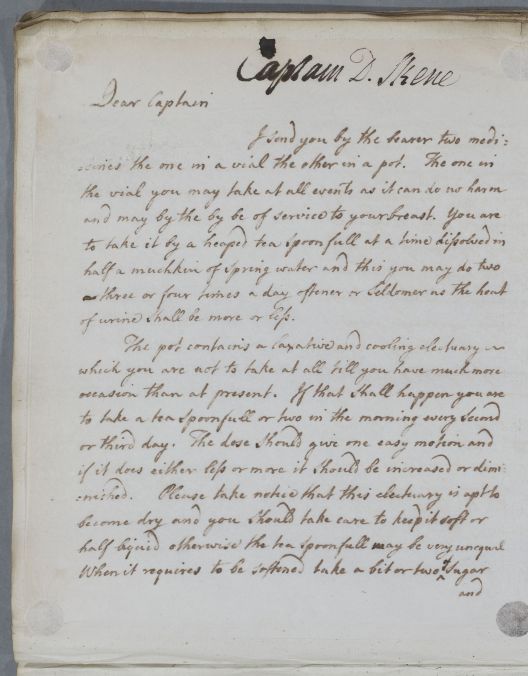 Captain D. Skene
Dear Captain
I send you by the bearer two medi:
:cines the one in a vial the other in a pot. The one in
the vial you may take at all events as it can do no harm
and may by the by be of service to your breast. You are
to take it by a heaped tea spoonfull at a time dissolved in
half a muchkin of spring water and this you may do two
three or four times a day oftener or seldomer as the heat
of urine shall be more or less.
The pot contains a laxative and cooling electuary
which you are not to take at all till you have much more
occasion than at present. If that shall happen you are
to take a tea spoonfull or two in the morning every second
or third day. The dose should give one easy motion and
if it does either less or more it should be increased or dimi
:nished. Please take notice that this electuary is apt to
become dry and you should take care to keep it soft or
half liquid otherwise the tea spoonfull may be very unequal
When it requires to be softened take a bit or two of sugar
and